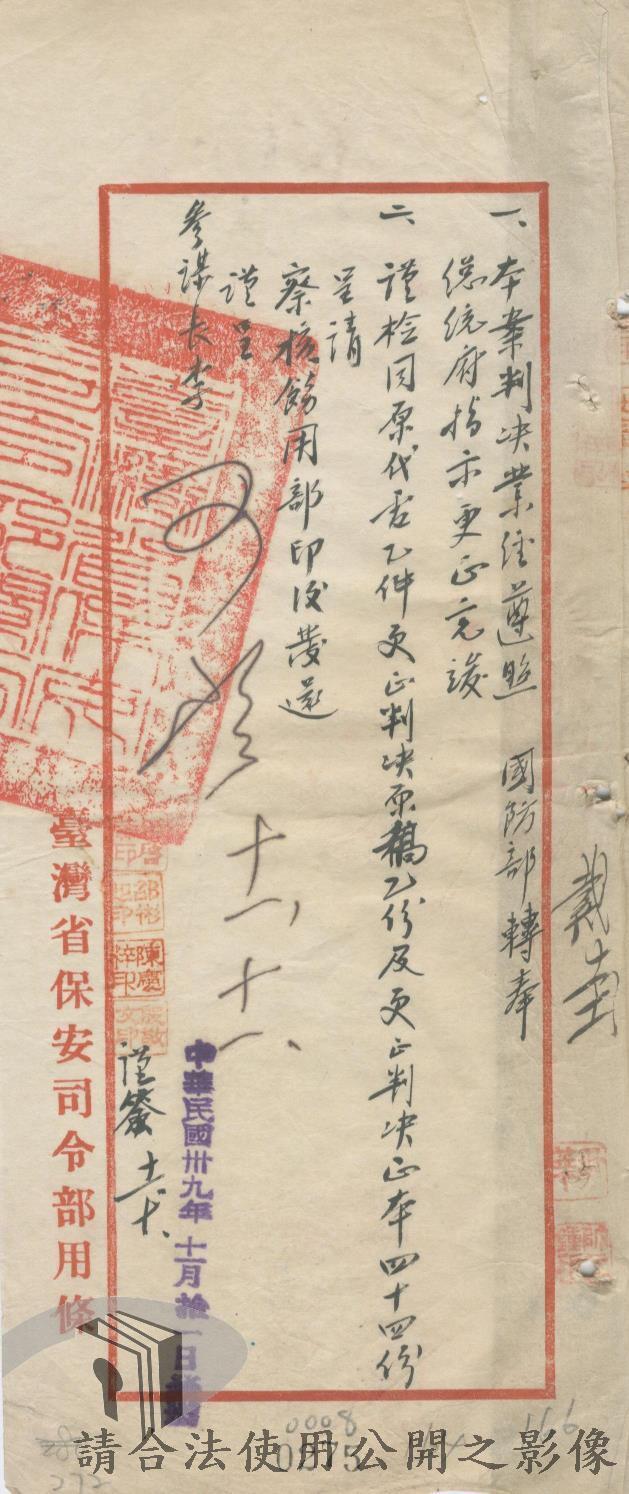 一、本案判決業經遵照 國防部轉奉
總統府指示更正完竣
二、謹檢同原代電乙件更正判決原稿乙份及更正判決正本四十四份
呈請
察核飭用部印後發還
謹呈
參謀長李
十一、十一、
中華民國卅九年十一月拾一日
謹簽 十一、十、
臺灣省保安司令部用條
0008
0275
116
272
請合法使用公開之影像